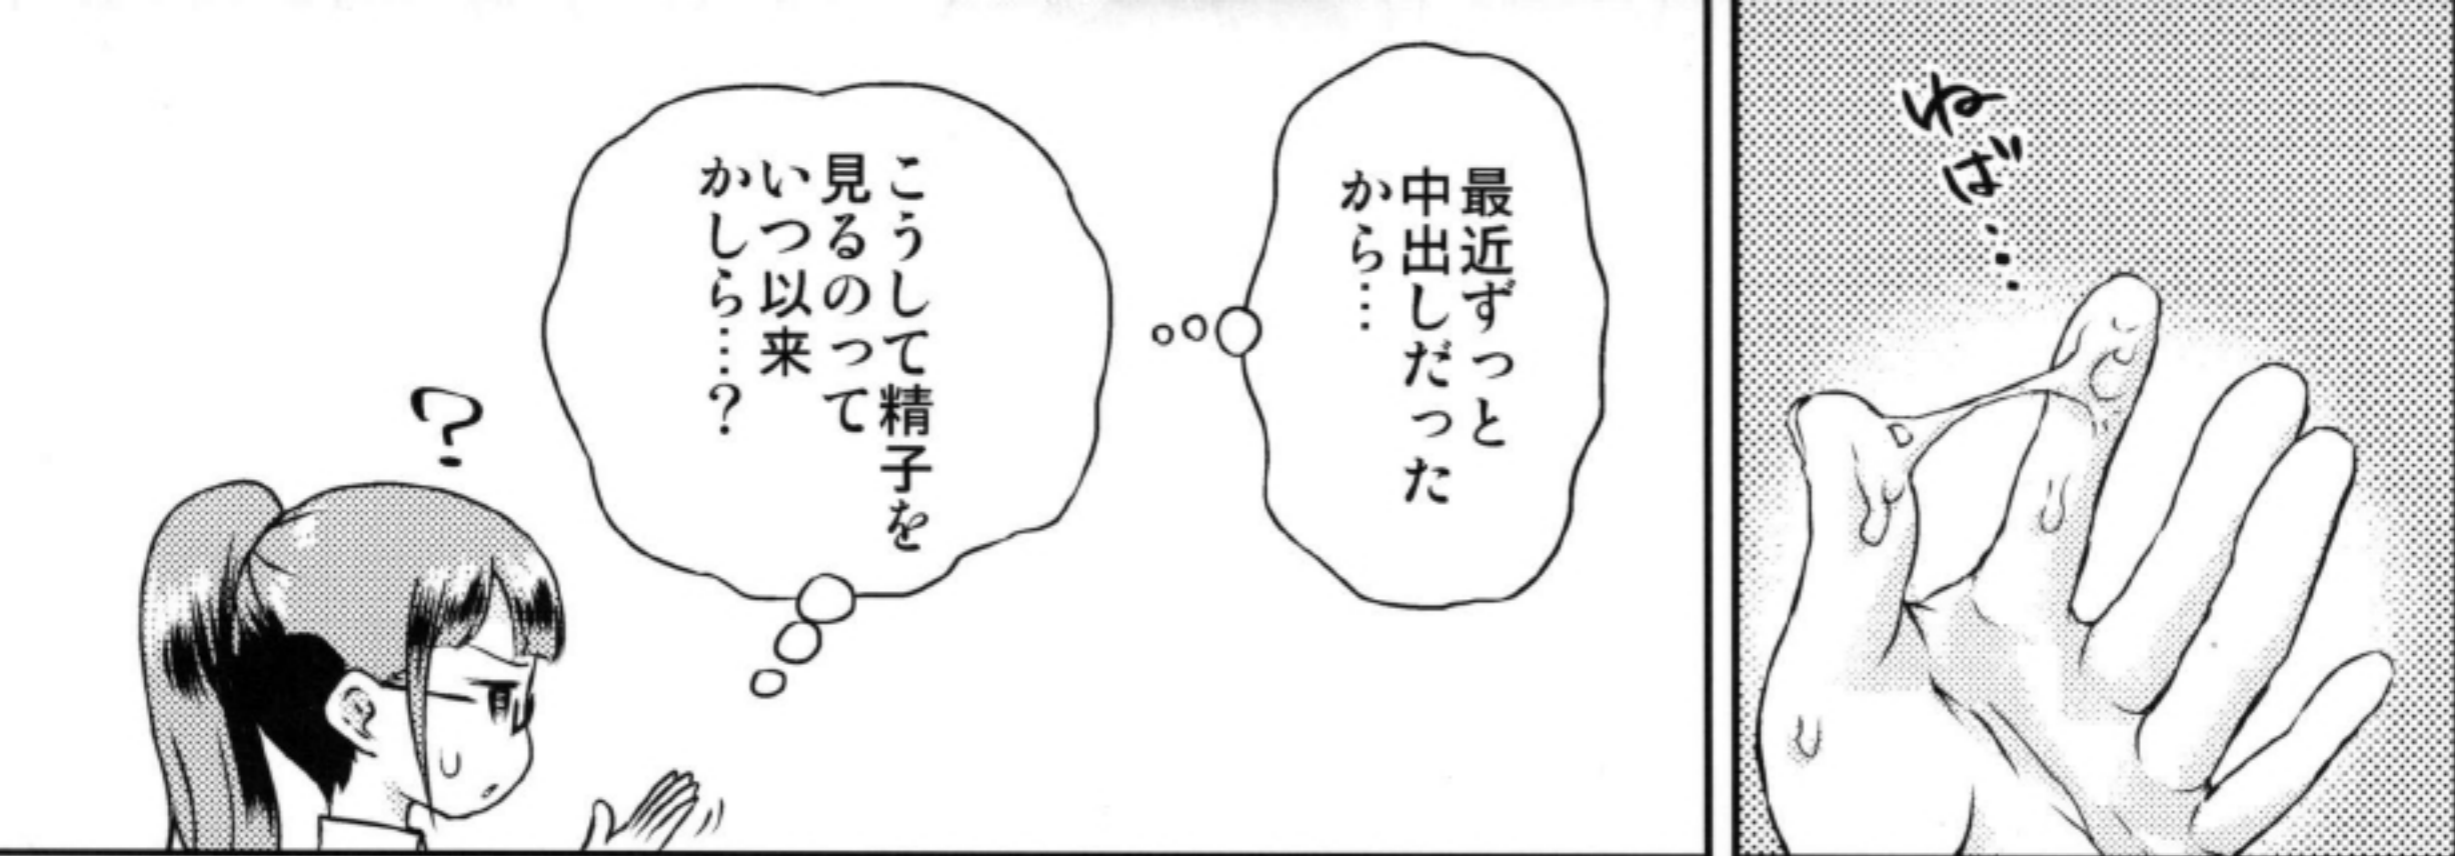 ねば…
最近ずっと
中出しだった
から…
こうして精子を
見るのって
いつ以来
かしら…？
？